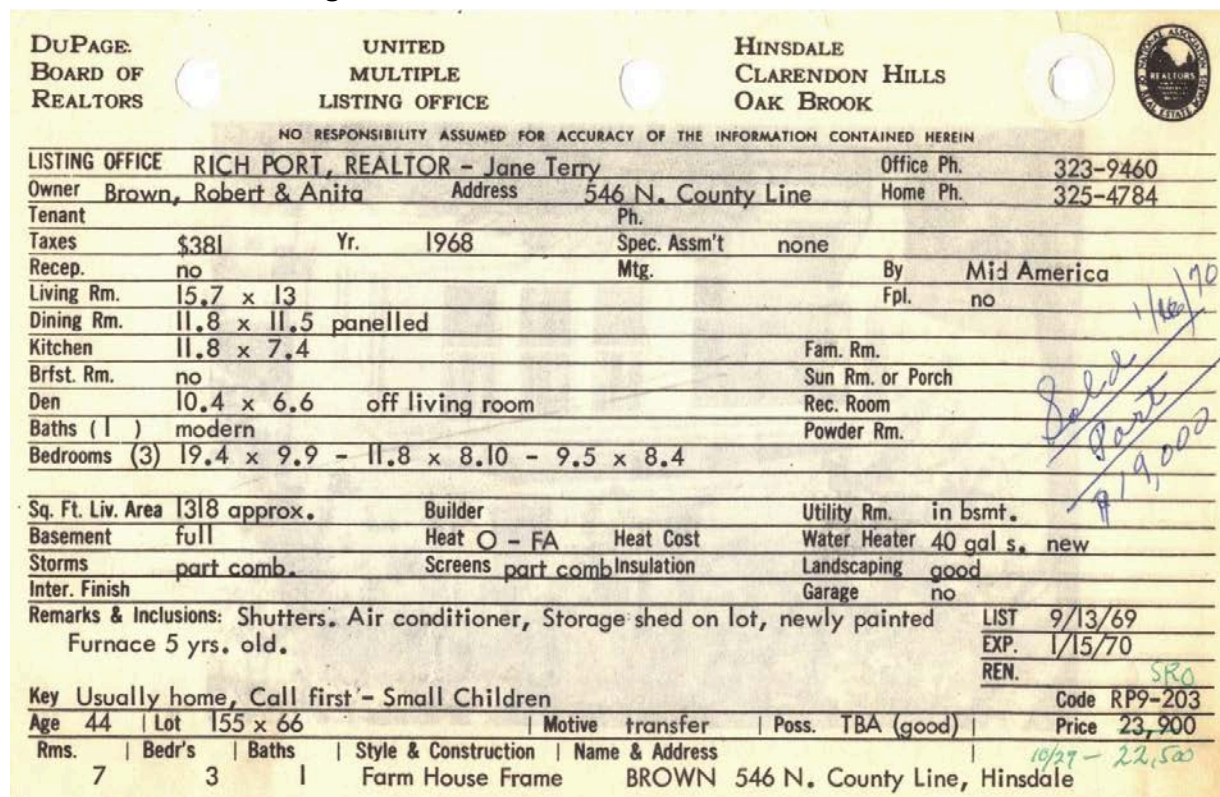 DUPAGE UNITED HINSDALE
BOARD OF MULTIPLE CLARENDON HILLS
REALTORS LISTING OFFICE OAK BROOK
REALTORS
NO RESPONSIBILITY ASSUMED FOR ACCURACY OF THE INFORMATION CONTAINED HEREIN
LISTING OFFICE RICH PORT, REALTOR - Jane Terry Office Ph. 323-9460
Owner Brown, Robert & Anita Address 546 N. County Line Home Ph. 325-4784
Tenant Ph.
Taxes $381 Yr. 1968 Spec. Assm't none
Recep. no Mtg. By Mid America
Living Rm. 15.7 x 13 Fpl. no
Dining Rm. 11.8 x 11.5 panelled
Kitchen 11.8 x 7.4 Fam. Rm.
Brfst. Rm. no Sun Rm. or Porch
Den 10.4 x 6.6 off living room Rec. Room
Baths (1) modern Powder Rm.
Bedrooms (3) 19.4 x 9.9 - 11.8 x 8.10 - 9.5 x 8.4
Sold
Port
$19,000
Sq. Ft. Liv. Area 1318 approx. Builder Utility Rm. in bsmt.
Basement full Heat O - FA Heat Cost Water Heater 40 gal s. new
Storms part comb. Screens part comb Insulation Landscaping good
Inter. Finish Garage no
Remarks & Inclusions: Shutters. Air conditioner, Storage shed on lot, newly painted LIST 9/13/69
Furnace 5 yrs. old. EXP. 1/15/70
REN. SRO
Key Usually home, Call first - Small Children Code RP9-203
Age 44 | Lot 155 x 66 | Motive transfer | Poss. TBA (good) | Price 23,900
Rms. | Bedr's | Baths | Style & Construction | Name & Address | 10/29 - 22,500
7 3 1 Farm House Frame BROWN 546 N. County Line, Hinsdale